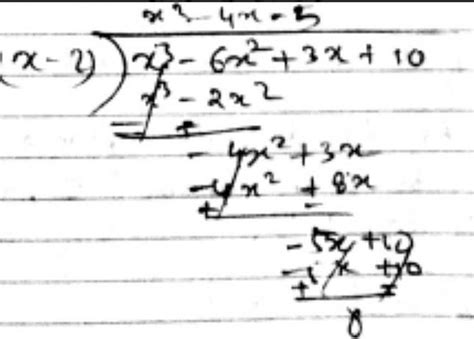 x² - 4x - 5
(x-2) ) x³ - 6x² + 3x + 10
x³ - 2x²
- +
- 4x² + 3x
- 4x² + 8x
+ -
- 5x + 10
- 5x + 10
+ -
0